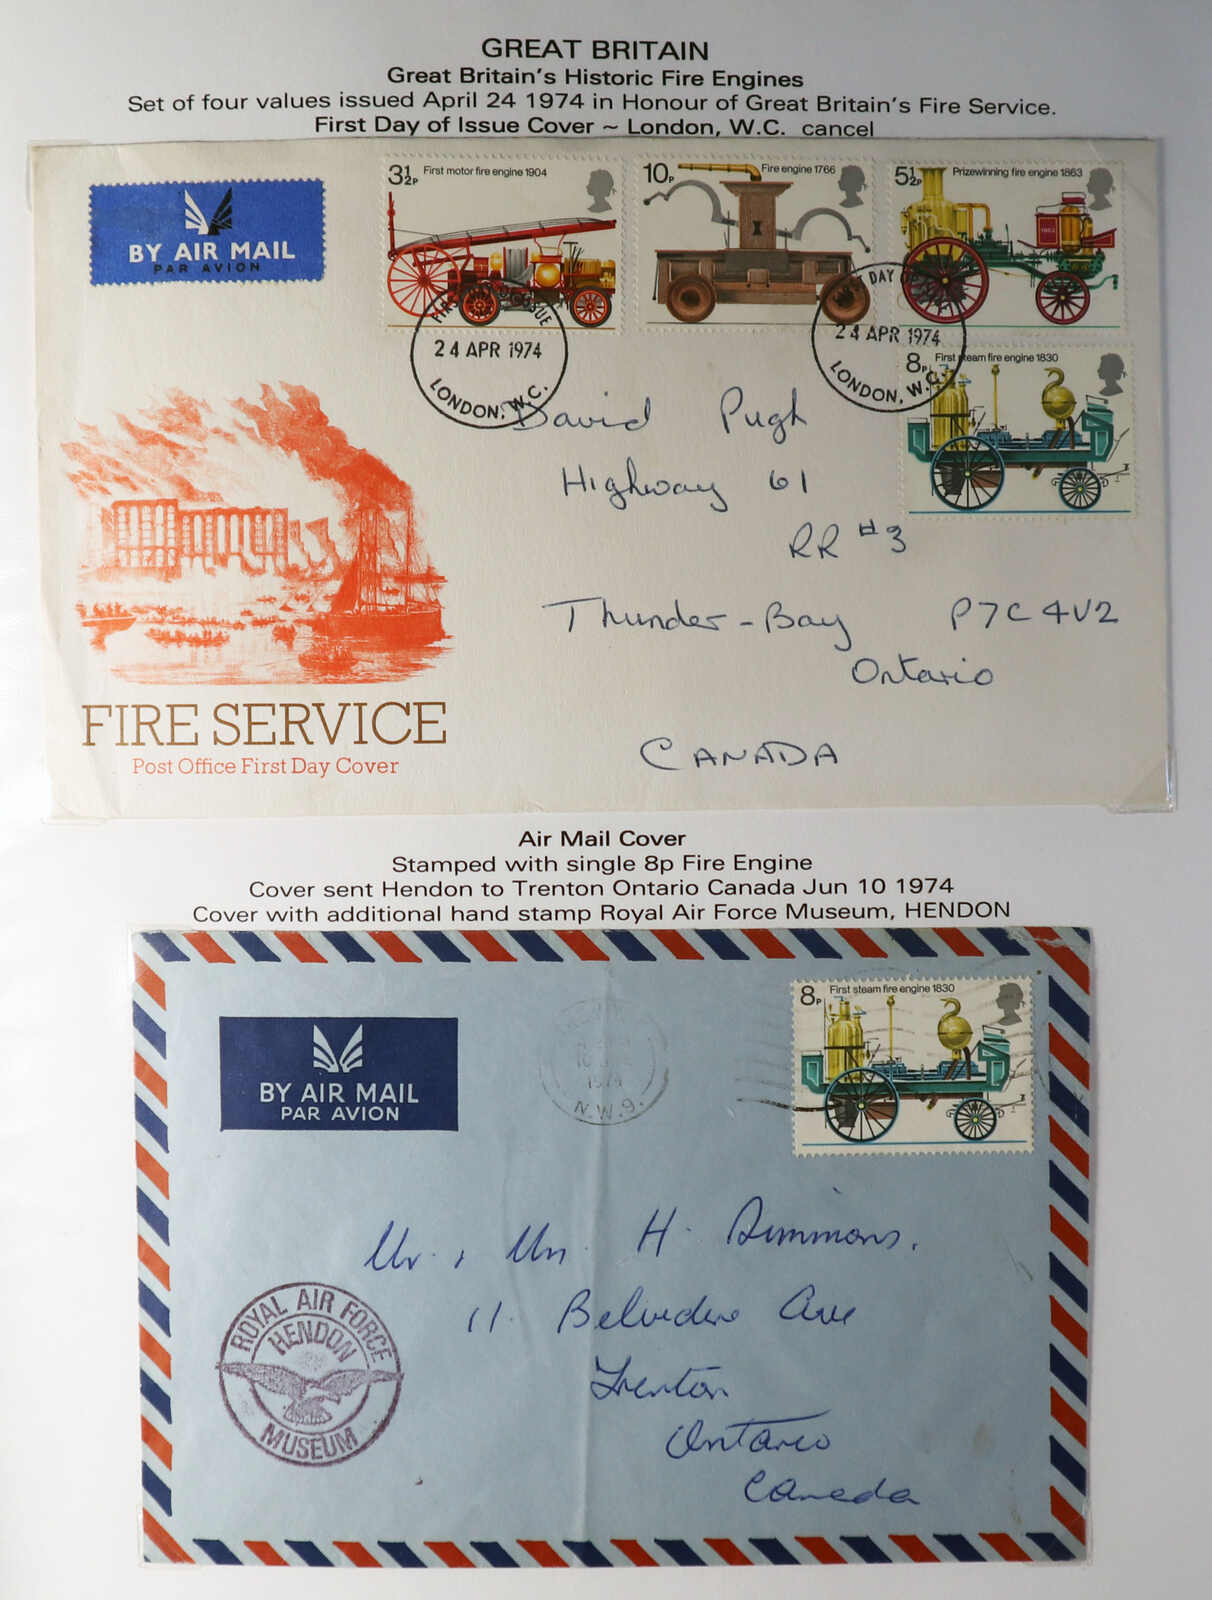 GREAT BRITAIN
Great Britain's Historic Fire Engines
Set of four values issued April 24 1974 in Honour of Great Britain's Fire Service.
First Day of Issue Cover ~ London, W.C. cancel
BY AIR MAIL
PAR AVION
3½P First motor fire engine 1904
10P Fire engine 1766
5½P Prizewinning fire engine 1863
8P First steam fire engine 1830
FIRST DAY OF ISSUE
24 APR 1974
LONDON, W.C.
24 APR 1974
LONDON, W.C.
David Pugh
Highway 61
RR #3
Thunder-Bay P7C 4V2
Ontario
CANADA
FIRE SERVICE
Post Office First Day Cover
Air Mail Cover
Stamped with single 8p Fire Engine
Cover sent Hendon to Trenton Ontario Canada Jun 10 1974
Cover with additional hand stamp Royal Air Force Museum, HENDON
BY AIR MAIL
PAR AVION
1974
N.W.9.
8P First steam fire engine 1830
Mr. & Mrs. H. Simmons.
11. Belvidere Ave
Trenton
Ontario
Canada
ROYAL AIR FORCE
HENDON
MUSEUM